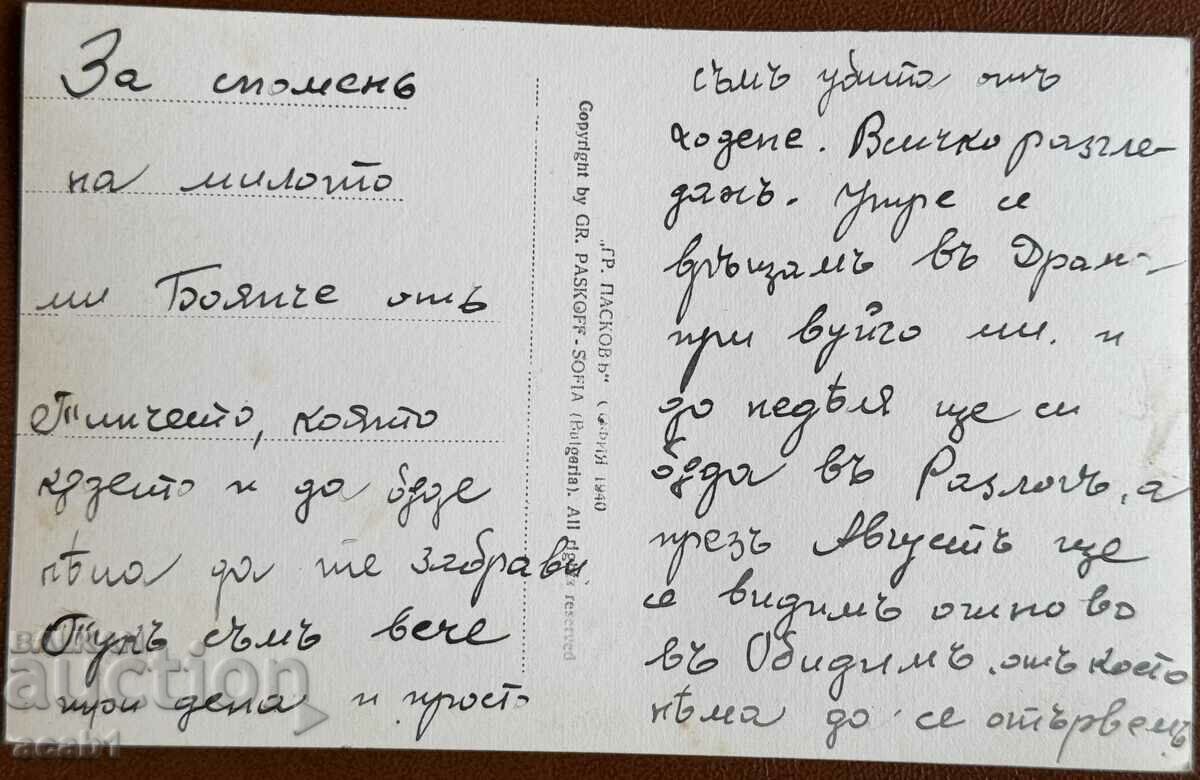 За споменъ
на милото
ми Боянче отъ
Тинчето, която
кѫдето и да бѫде
нѣма да те забрави
Тукъ съмъ вече
три дена и просто
съмъ убита отъ
ходене. Всичко разгле-
дахъ. Утре се
връщамъ въ Драм-
при вуйчо ми. и
до недѣля ще си
бѫда въ Разлогъ, а
презъ Августъ ще
се видимъ отново
въ Обидимъ. отъ което
нѣма да се отървемъ
„ГР. ПАСКОВЪ“ СОФИЯ 1940
Copyright by GR. PASKOFF - SOFIA (Bulgaria). All rights reserved
auction
acab1